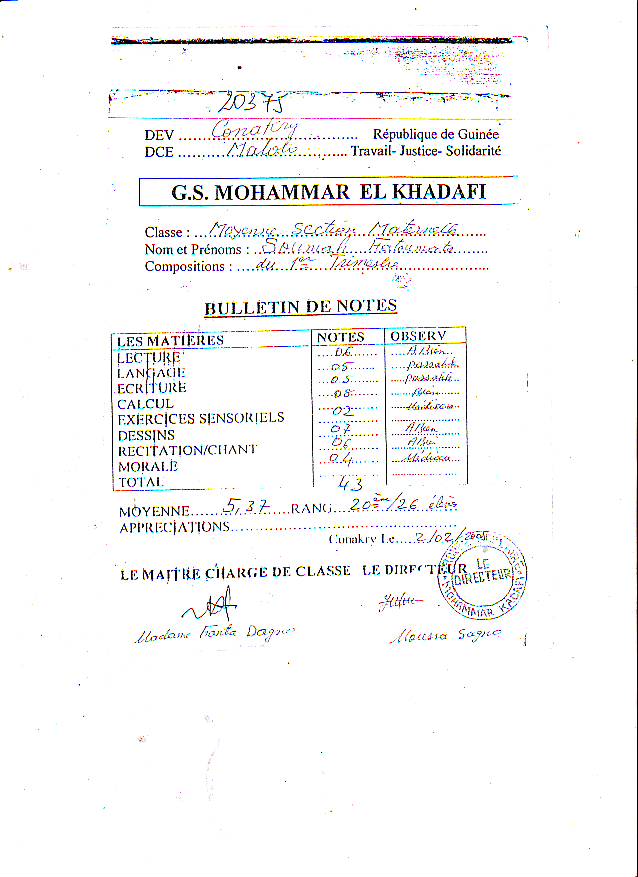 20375
DEV ...... Conakry ...... République de Guinée
DCE ...... Matoto ...... Travail- Justice- Solidarité
G.S. MOHAMMAR EL KHADAFI
Classe : ... Moyenne Section Maternelle ......
Nom et Prénoms : .. Soumah Fatoumata ......
Compositions : .... du 1er Trimestre ......
BULLETIN DE NOTES
LES MATIERES NOTES OBSERV
LECTURE 06 A.Bien
LANGAGE 05 passable
ECRITURE 05 passable
CALCUL 08 Bien
EXERCICES SENSORIELS 02
DESSINS 07 A.Bien
RECITATION/CHANT 06 A.Bien
MORALE 04 Médiocre
TOTAL 43
MOYENNE ...... 5,37 ..... RANG ... 20ème/26 élèves
APPRECIATIONS......
Conakry Le.... 2/02/
LE MAITRE CHARGE DE CLASSE LE DIRECTEUR
LE DIRECTEUR
MOHAMMAR KADAFI
Madame Fanta Dagno
Moussa Sagno